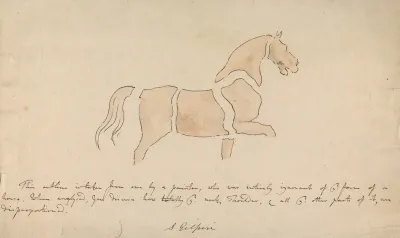 This outline is taken from one by a painter, who was entirely ignorant of ye form of a
horse. When analyzed, you discern how totally ye neck, shoulders, & all ye other parts of it, are
disproportioned.
S. Gilpin